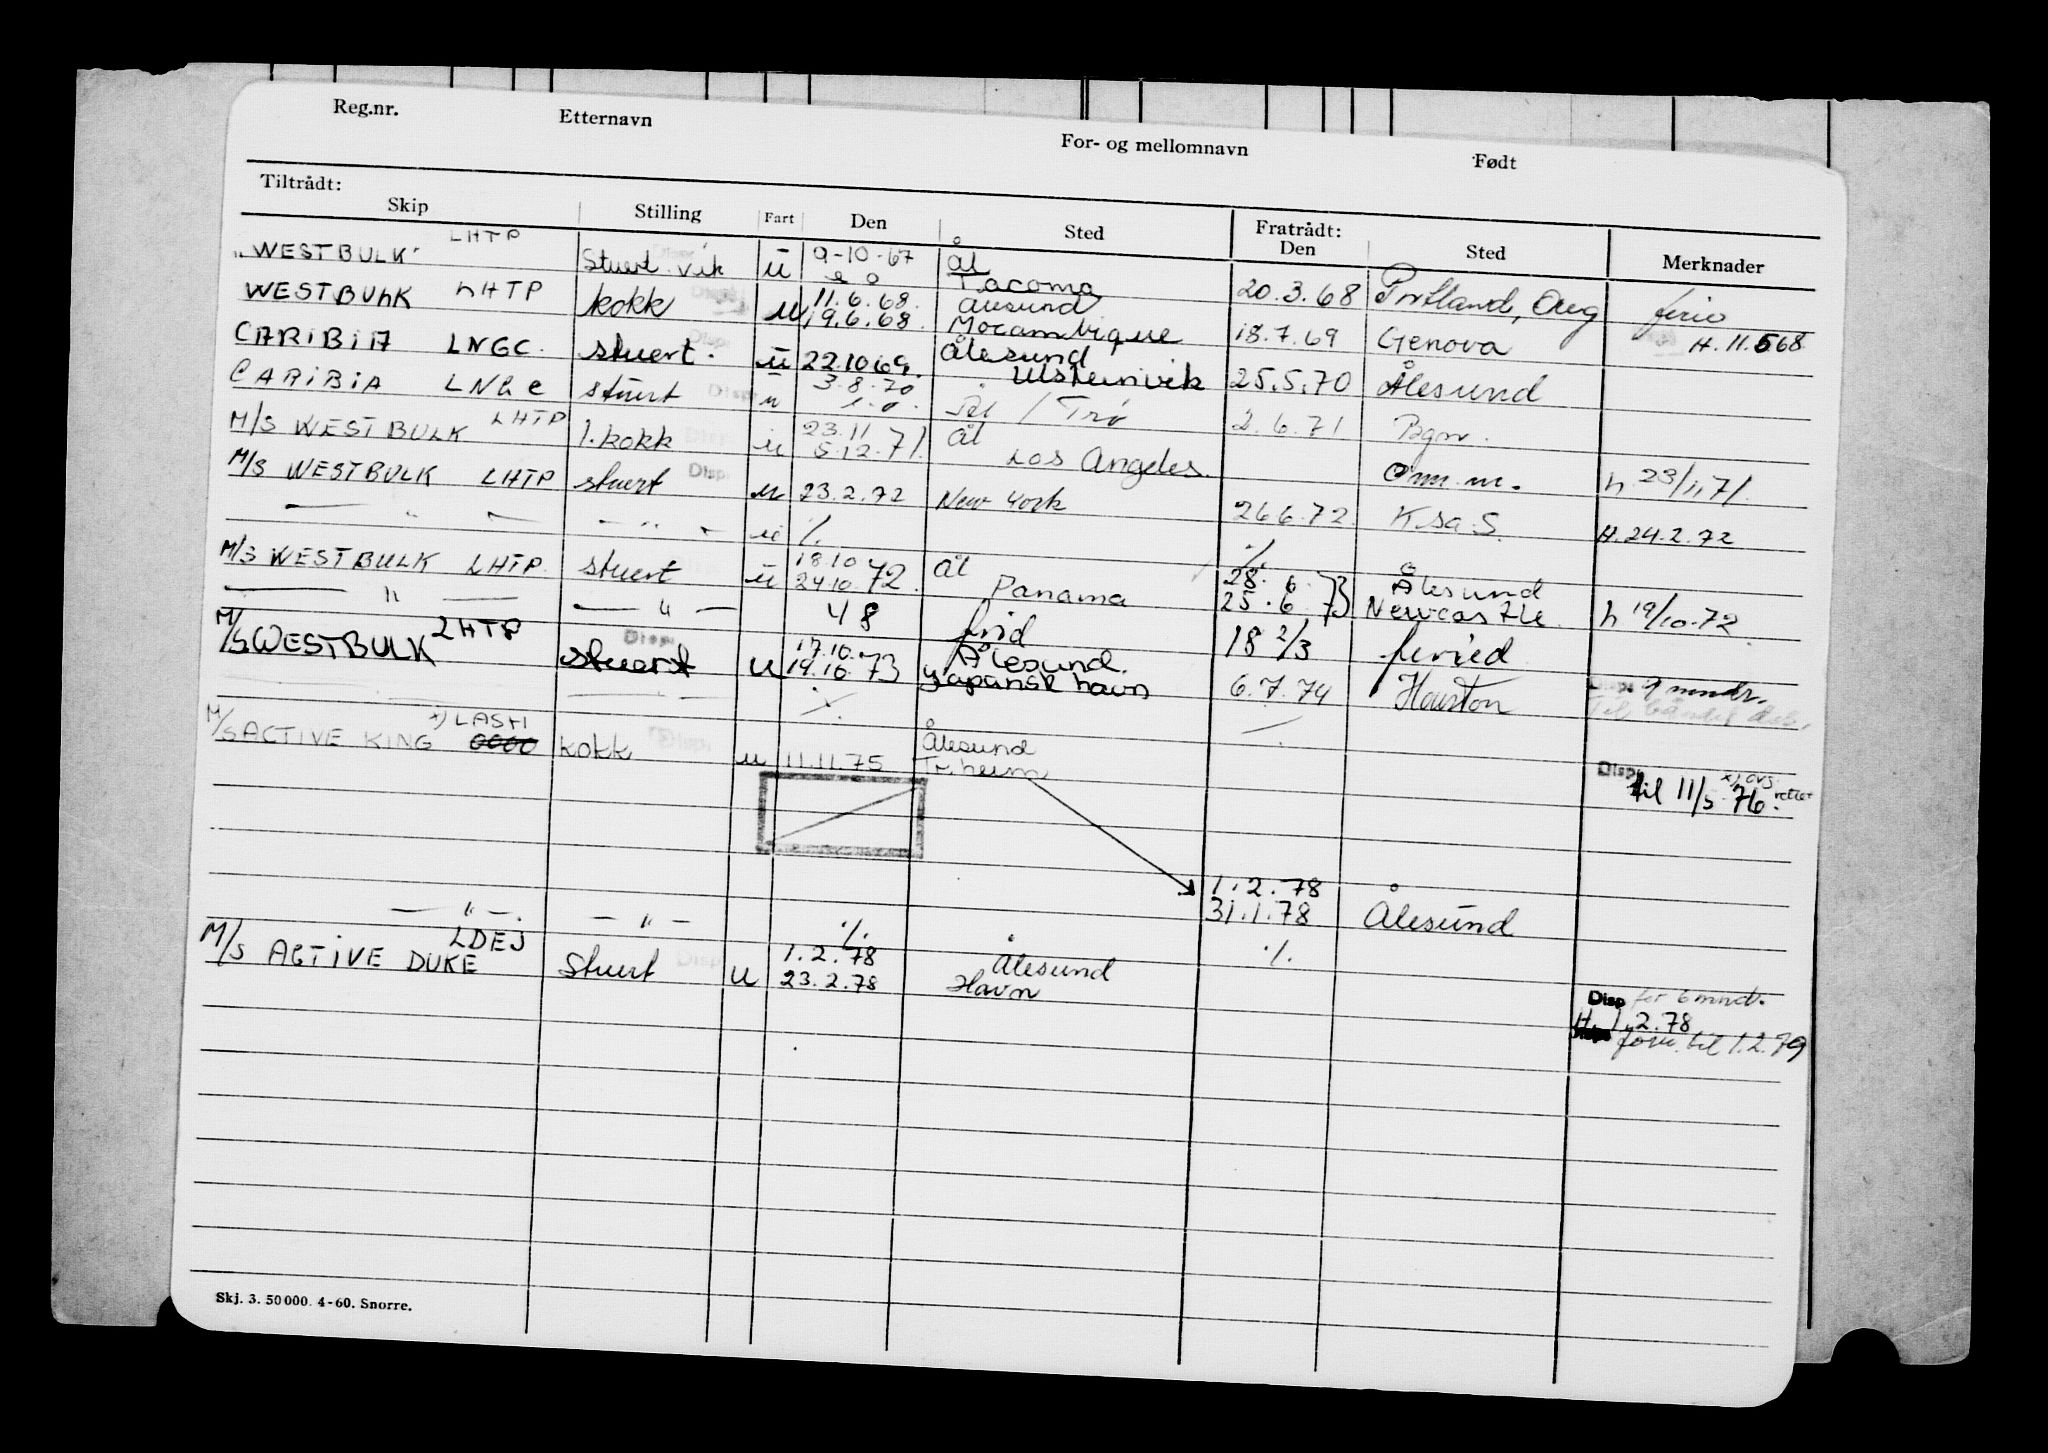 Reg.nr. Etternavn For- og mellomnavn Født
Tiltrådt: Fratrådt:
Skip Stilling Fart Den Sted Den Sted Merknader
"WESTBULK" LHTP Stuert vik ü 9-10-67 Ål 20.3.68 Portland, Oreg ferie
Tacoma
WESTBULK LHTP kokk u 11.6.68. Ålesund 18.7.69 Genova H. 11.568
19.6.68. Mocambique
CARIBIA LNGC. stuert. ü 22.10 69. Ålesund 25.5.70 Ålesund
Ulsteinvik
CARIBIA LNGC stuert u 3.8.70 / Trø 2.6.71 Bgm.
M/S WESTBULK LHTP 1.kokk ü 23.11 Ål Omm. h 23/11.71.
5.12.71. Los Angeles.
M/S WESTBULK LHTP stuert Disp. u 23.2.72 New York 26 6.72. K.sa.S. H.24.2.72
— " — — " — u ./. ./.
M/S WESTBULK LHTP. stuert ü 18.10 Ål 28. 6. 73 Ålesund h 19/10.72.
24.10.72. Panama 25.6.73 Newcastle
— " — — " — 48 frid 18 2/3 feried
M/S WESTBULK LHTP Disp. stuert u 17.10. Ålesund. 6.7.74 Houston Disp. 9 mndr.
19.10.73 japansk havn
./.
M/S ACTIVE KING x) LASH 0000 kokk Disp. u 11.11.75 Ålesund Disp til 11/5 76. x) ovs. rettet
Trheim
1.2.78
— " —. — " — ./. 31.1.78 Ålesund
M/S ACTIVE DUKE LDEJ Stuert Disp u 1.2.78 Ålesund ./.
23.2.78 Havn
Disp for 6 mnd.
H. 1.2.78
forl. til 1.2.79
Skj. 3. 50000. 4-60. Snorre.